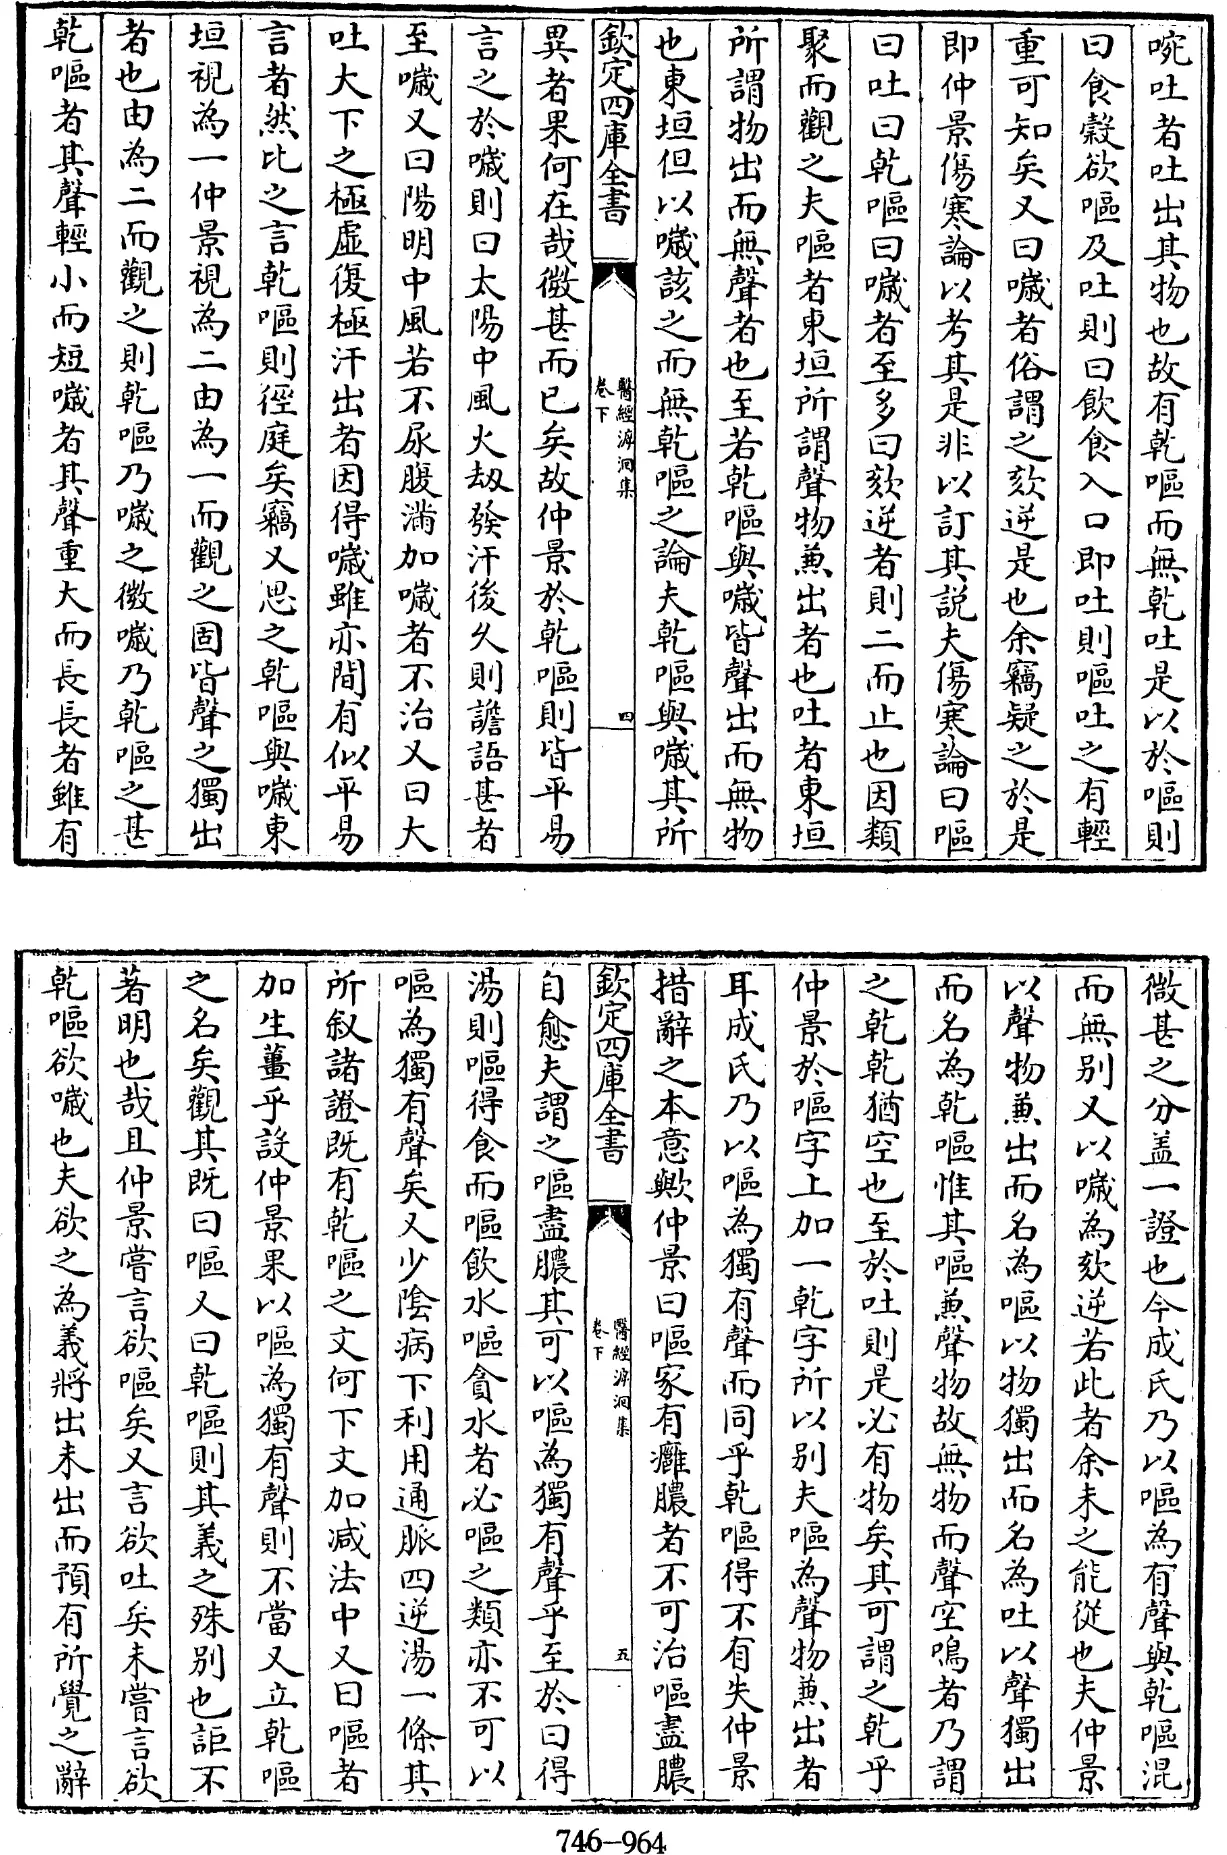 啘吐者吐出其物也故有乾嘔而無乾吐是以於嘔則
曰食穀欲嘔及吐則曰飲食入口即吐則嘔吐之有輕
重可知矣又曰噦者俗謂之欬逆是也余竊疑之於是
即仲景傷寒論以考其是非以訂其説夫傷寒論曰嘔
曰吐曰乾嘔曰噦者至多曰欬逆者則二而止也因類
聚而觀之夫嘔者東垣所謂聲物兼出者也吐者東垣
所謂物出而無聲者也至若乾嘔與噦皆聲出而無物
也東垣但以噦該之而無乾嘔之論夫乾嘔與噦其所
欽定四庫全書
醫經溯洄集
卷下
四
異者果何在哉微甚而已矣故仲景於乾嘔則皆平易
言之於噦則曰太陽中風火刼發汗後久則譫語甚者
至噦又曰陽明中風若不尿腹滿加噦者不治又曰大
吐大下之極虛復極汗出者因得噦雖亦間有似平易
言者然比之言乾嘔則徑庭矣竊又思之乾嘔與噦東
垣視為一仲景視為二由為一而觀之固皆聲之獨出
者也由為二而觀之則乾嘔乃噦之微噦乃乾嘔之甚
乾嘔者其聲輕小而短噦者其聲重大而長長者雖有
微甚之分盖一證也今成氏乃以嘔為有聲與乾嘔混
而無别又以噦為欬逆若此者余未之能從也夫仲景
以聲物兼出而名為嘔以物獨出而名為吐以聲獨出
而名為乾嘔惟其嘔兼聲物故無物而聲空鳴者乃謂
之乾乾猶空也至於吐則是必有物矣其可謂之乾乎
仲景於嘔字上加一乾字所以别夫嘔為聲物兼出者
耳成氏乃以嘔為獨有聲而同乎乾嘔得不有失仲景
措辭之本意歟仲景曰嘔家有癰膿者不可治嘔盡膿
欽定四庫全書
醫經溯洄集
卷下
五
自愈夫謂之嘔盡膿其可以嘔為獨有聲乎至於曰得
湯則嘔得食而嘔飲水嘔貪水者必嘔之類亦不可以
嘔為獨有聲矣又少陰病下利用通脈四逆湯一條其
所叙諸證既有乾嘔之文何下文加减法中又曰嘔者
加生薑乎設仲景果以嘔為獨有聲則不當又立乾嘔
之名矣觀其既曰嘔又曰乾嘔則其義之殊别也詎不
著明也哉且仲景嘗言欲嘔矣又言欲吐矣未嘗言欲
乾嘔欲噦也夫欲之為義將出未出而預有所覺之辭
746-964